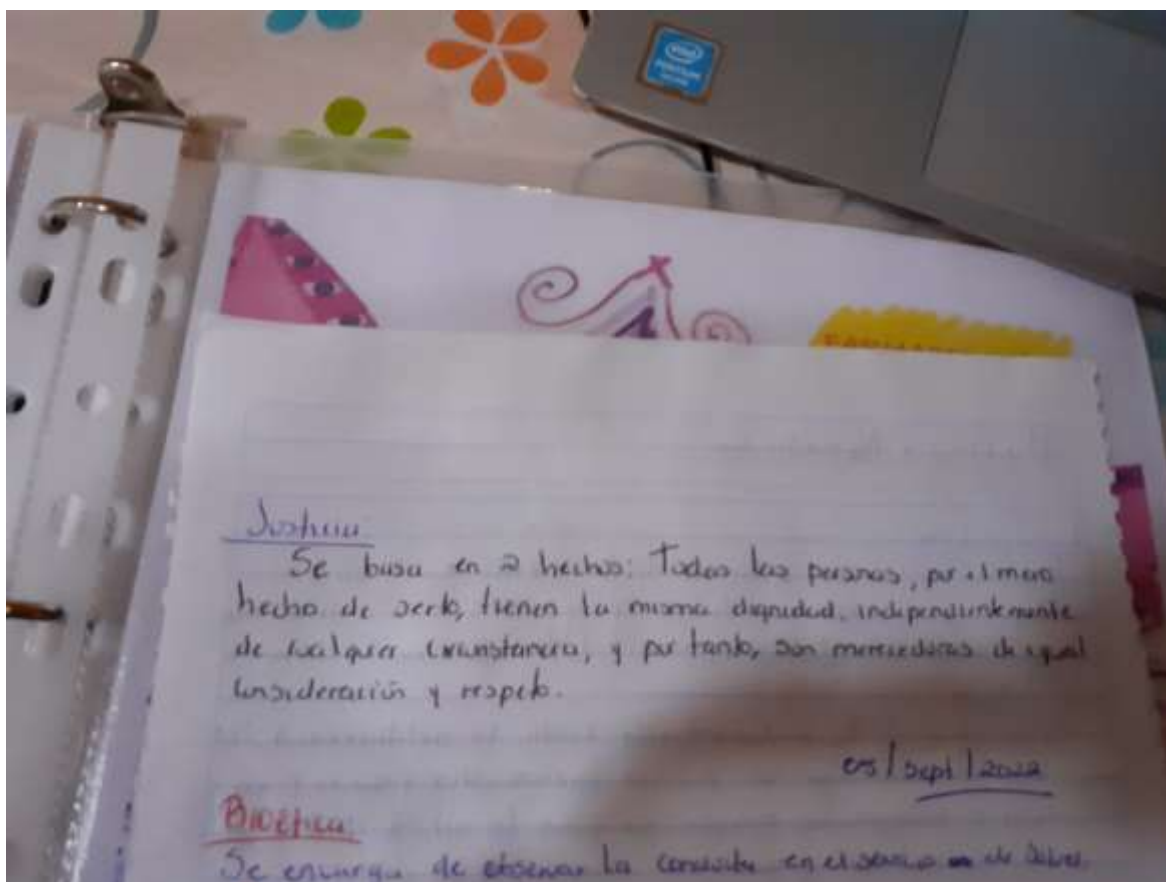 intel
PENTIUM
Se basa en 2 hechos: Todas las personas, por el mero
hecho de serlo, tienen la misma dignidad, independientemente
de cualquier circunstancia, y por tanto, son merecedoras de igual
consideración y respeto.
05/sept/2022
Bioética
Se encarga de observar la conducta en el de